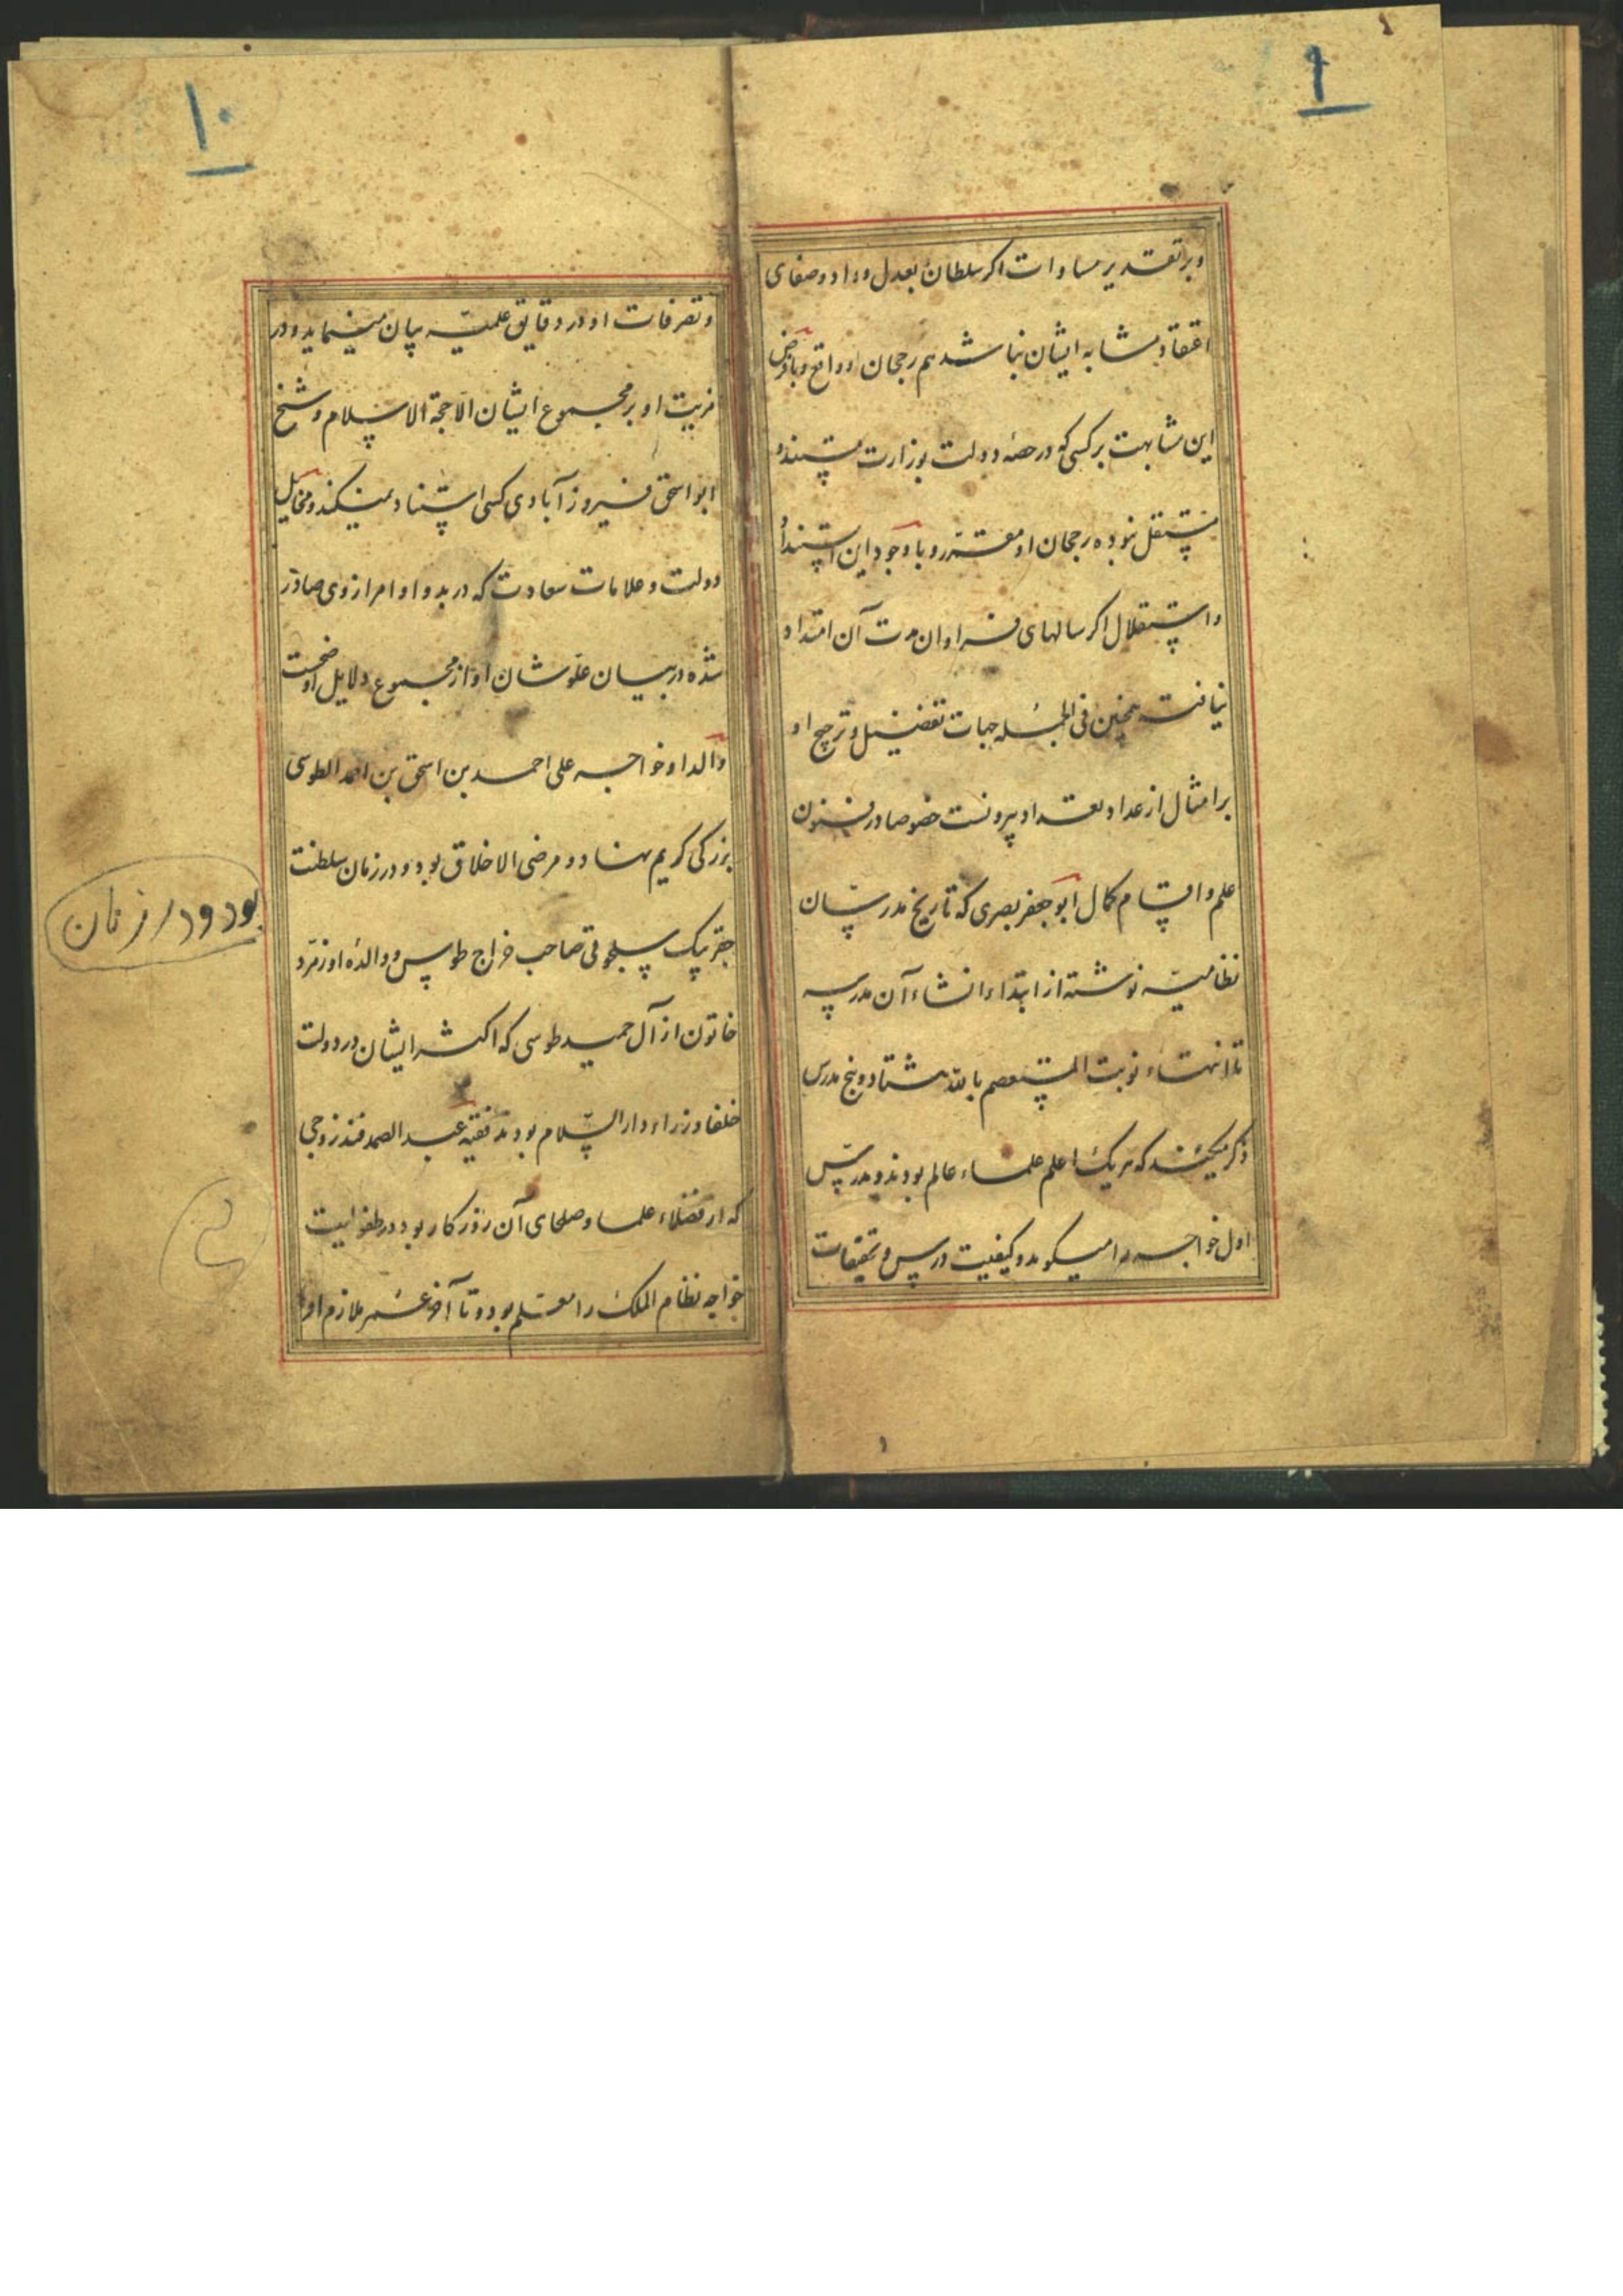 ۹
وبر تقدیر مساوات اکر سلطان بعدل و داد و صفای
اعتقاد مشابه ایشان نباشد هم رجحان او واقع و بافرض
این مشابهت بر کسی که در حصهٔ دولت بوزارت مستند و
مستقل نبوده رجحان او مقرر و با وجود این استناد
و استقلال اکر سالهای فراوان مدت آن امتداد
نیافت همچنین فی الجمله جهات تفضیل و ترجیح او
بر امثال از عداد تعداد بیرونست خصوصا در فنون
علم و اقسام کمال ابو جعفر بصری که تاریخ مدرسان
نظامیه نوشته از ابتداء انشاء آن مدرسه
تا انتهاء نوبت المستعصم بالله هشتاد و پنج مدرس
ذکر میکند که هر یک اعلم علماء عالم بودند و مدرس
اول خواجه را میکوید و کیفیت درس و تحقیقات
۱۰
و تصرفات او در دقایق علمیّه بیان مینماید و در
مزیت او بر مجموع ایشان الا حجة الاسلام و شیخ
ابو اسحق فیروزآبادی کسی استناد نمیکند و مخایل
دولت و علامات سعادت که در بدو اوامر از وی صادر
شده در بیان علو شان او از مجموع دلایل اوضحست
والد او خواجه علی احمد بن اسحق بن احمد الطوسی
بزرکی کریم نهاد و مرضی الاخلاق بود و در زمان سلطنت
بود و در زمان
جقر بیک سلجوقی صاحب خراج طوس و والدهٔ او زمرد
خاتون از آل حمید طوسی که اکثر ایشان در دولت
خلفا وزراء دار السلام بودند فقیه عبد الصمد فندزوجی
که از فضلاء علما و صلحای آن روزکار بود در طفولیت
خواجه نظام الملک را معلم بود و تا آخر عمر ملازم او